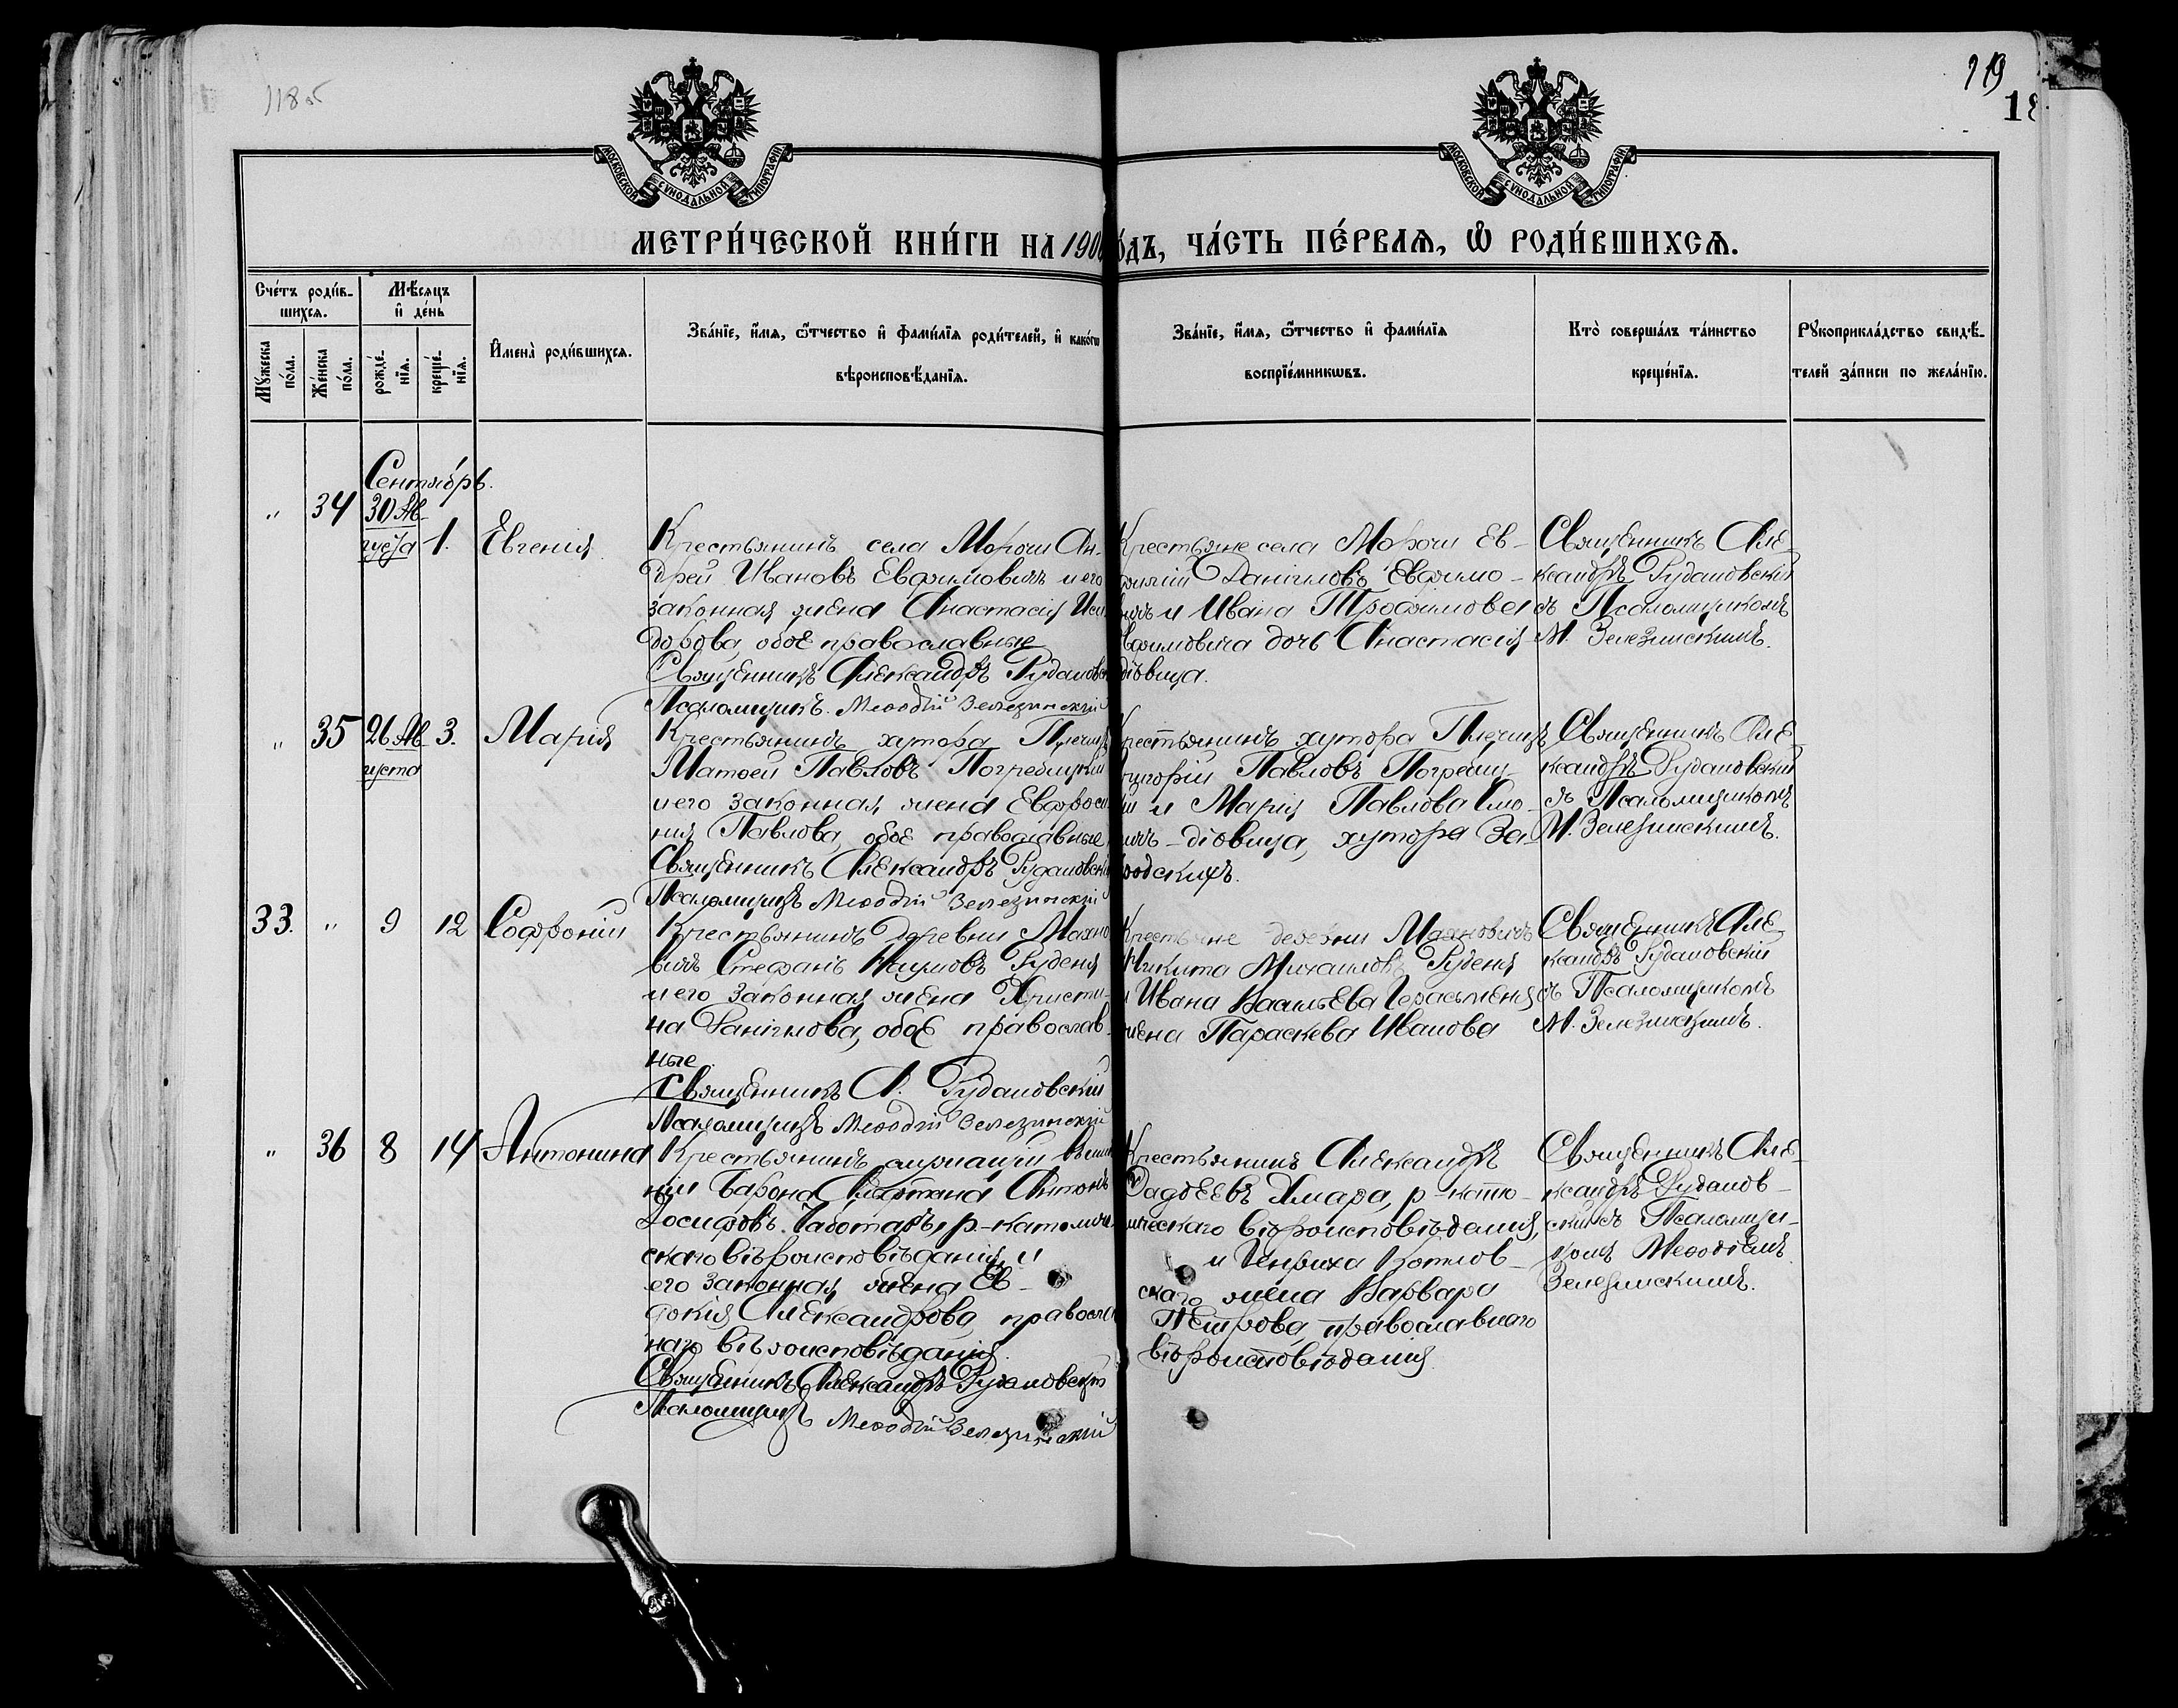 118 об
119
18
МОСКОВСКОЙ СѴНОДАЛЬНОЙ ТИПОГРАФІИ
МОСКОВСКОЙ СѴНОДАЛЬНОЙ ТИПОГРАФІИ
МЕТРИ́ЧЕСКОЙ КНИ́ГИ НА 190
О́ДЪ, ЧА́СТЬ ПЕ́РВАѦ, Ѿ РОДИ́ВШИХСѦ.
Сче́тъ роди́в-
шихсѧ.
Мꙋжеска по́ла.
Же́нска по́ла.
Мѣ́сѧцъ
и҆ де́нь
рожде́-
нїѧ.
креще́-
нїѧ.
И҆мена̀ роди́вшихсѧ.
Зва́нїе, и҆́мѧ, ѻ҆́тчество и҆ фами́лїѧ роди́телей, и҆ како́гѡ
вѣроисповѣ́данїѧ.
Зва́нїе, и҆́мѧ, ѻ҆́тчество и҆ фами́лїѧ
воспрїе́мникѡвъ.
Кто̀ соверша́лъ та́инство
креще́нїѧ.
Рꙋкоприкла́дство свидѣ́-
телей за́писи по жела́нїю.
Сентябрь.
" 34 30 Ав-
густа 1. Евгенія
Крестьянинъ села Морочи Ан-
дрей Ивановъ Евфимовичъ и его
законная жена Анастасія Иси
дорова, обоє православные
Священникъ Александръ Рудановск
Псаломщикъ Меѳодій Зелезинскій
Крестьяне села Морочи Ев-
Даніиловъ Евфимо-
вичъ и Ивана Трофимова
Евфимовича дочь Анастасія
дѣвица.
Священникъ Але-
ксандръ Рудановскій
съ Псаломщикомъ
М. Зелезинскимъ.
" 35 26 Ав-
густа 3. Марія
Крестьянинъ хутора
Матѳей Павловъ Погребицкій
и его законная жена Евфроси
нія Павлова, обоє православные,
Священникъ Александръ Рудановскій
Псаломщикъ Меѳодій Зелезинскій
Крестьянинъ хутора
Григорій Павловъ Погребиц-
кій и Марія Павлова
дѣвица, хутора За-
родскихъ.
Священникъ Але-
ксандръ Рудановскій
съ Псаломщикомъ
М. Зелезинскимъ.
33. " 9 12 Софроній
Крестьянинъ деревни Махно
вичъ Стефанъ Наумовъ Руденя
и его законная жена Христи-
на Даніилова, обоє православ-
ные.
Священникъ А. Рудановскій
Псаломщикъ Меѳодій Зелезинскій
Крестьяне деревни Махновичъ
Никита Михаиловъ Руденя
и Ивана Васильева Герасименя
жена Параскева Иванова
Священникъ Але-
ксандръ Рудановскій
съ Псаломщикомъ
М. Зелезинскимъ.
" 36 8 14 Антонина
Крестьянинъ служащій въ имѣ
ніи Барона Антонъ
Іосифовъ р-католиче
скаго вѣроисповѣданія, и
его законная жена Ев-
докія Александрова, православ
наго вѣроисповѣданія.
Священникъ Александръ Рудановскій
Псаломщикъ Меѳодій Зелезинскій
Крестьянинъ Александръ
Ѳадѣевъ Хмара, р-като-
лическаго вѣроисповѣданія,
и Генриха Котлов-
скаго жена Варвара
Петрова, православнаго
вѣроисповѣданія.
Священникъ Але-
ксандръ Руданов-
скій съ Псаломщи-
комъ Меѳодіемъ
Зелезинскимъ.